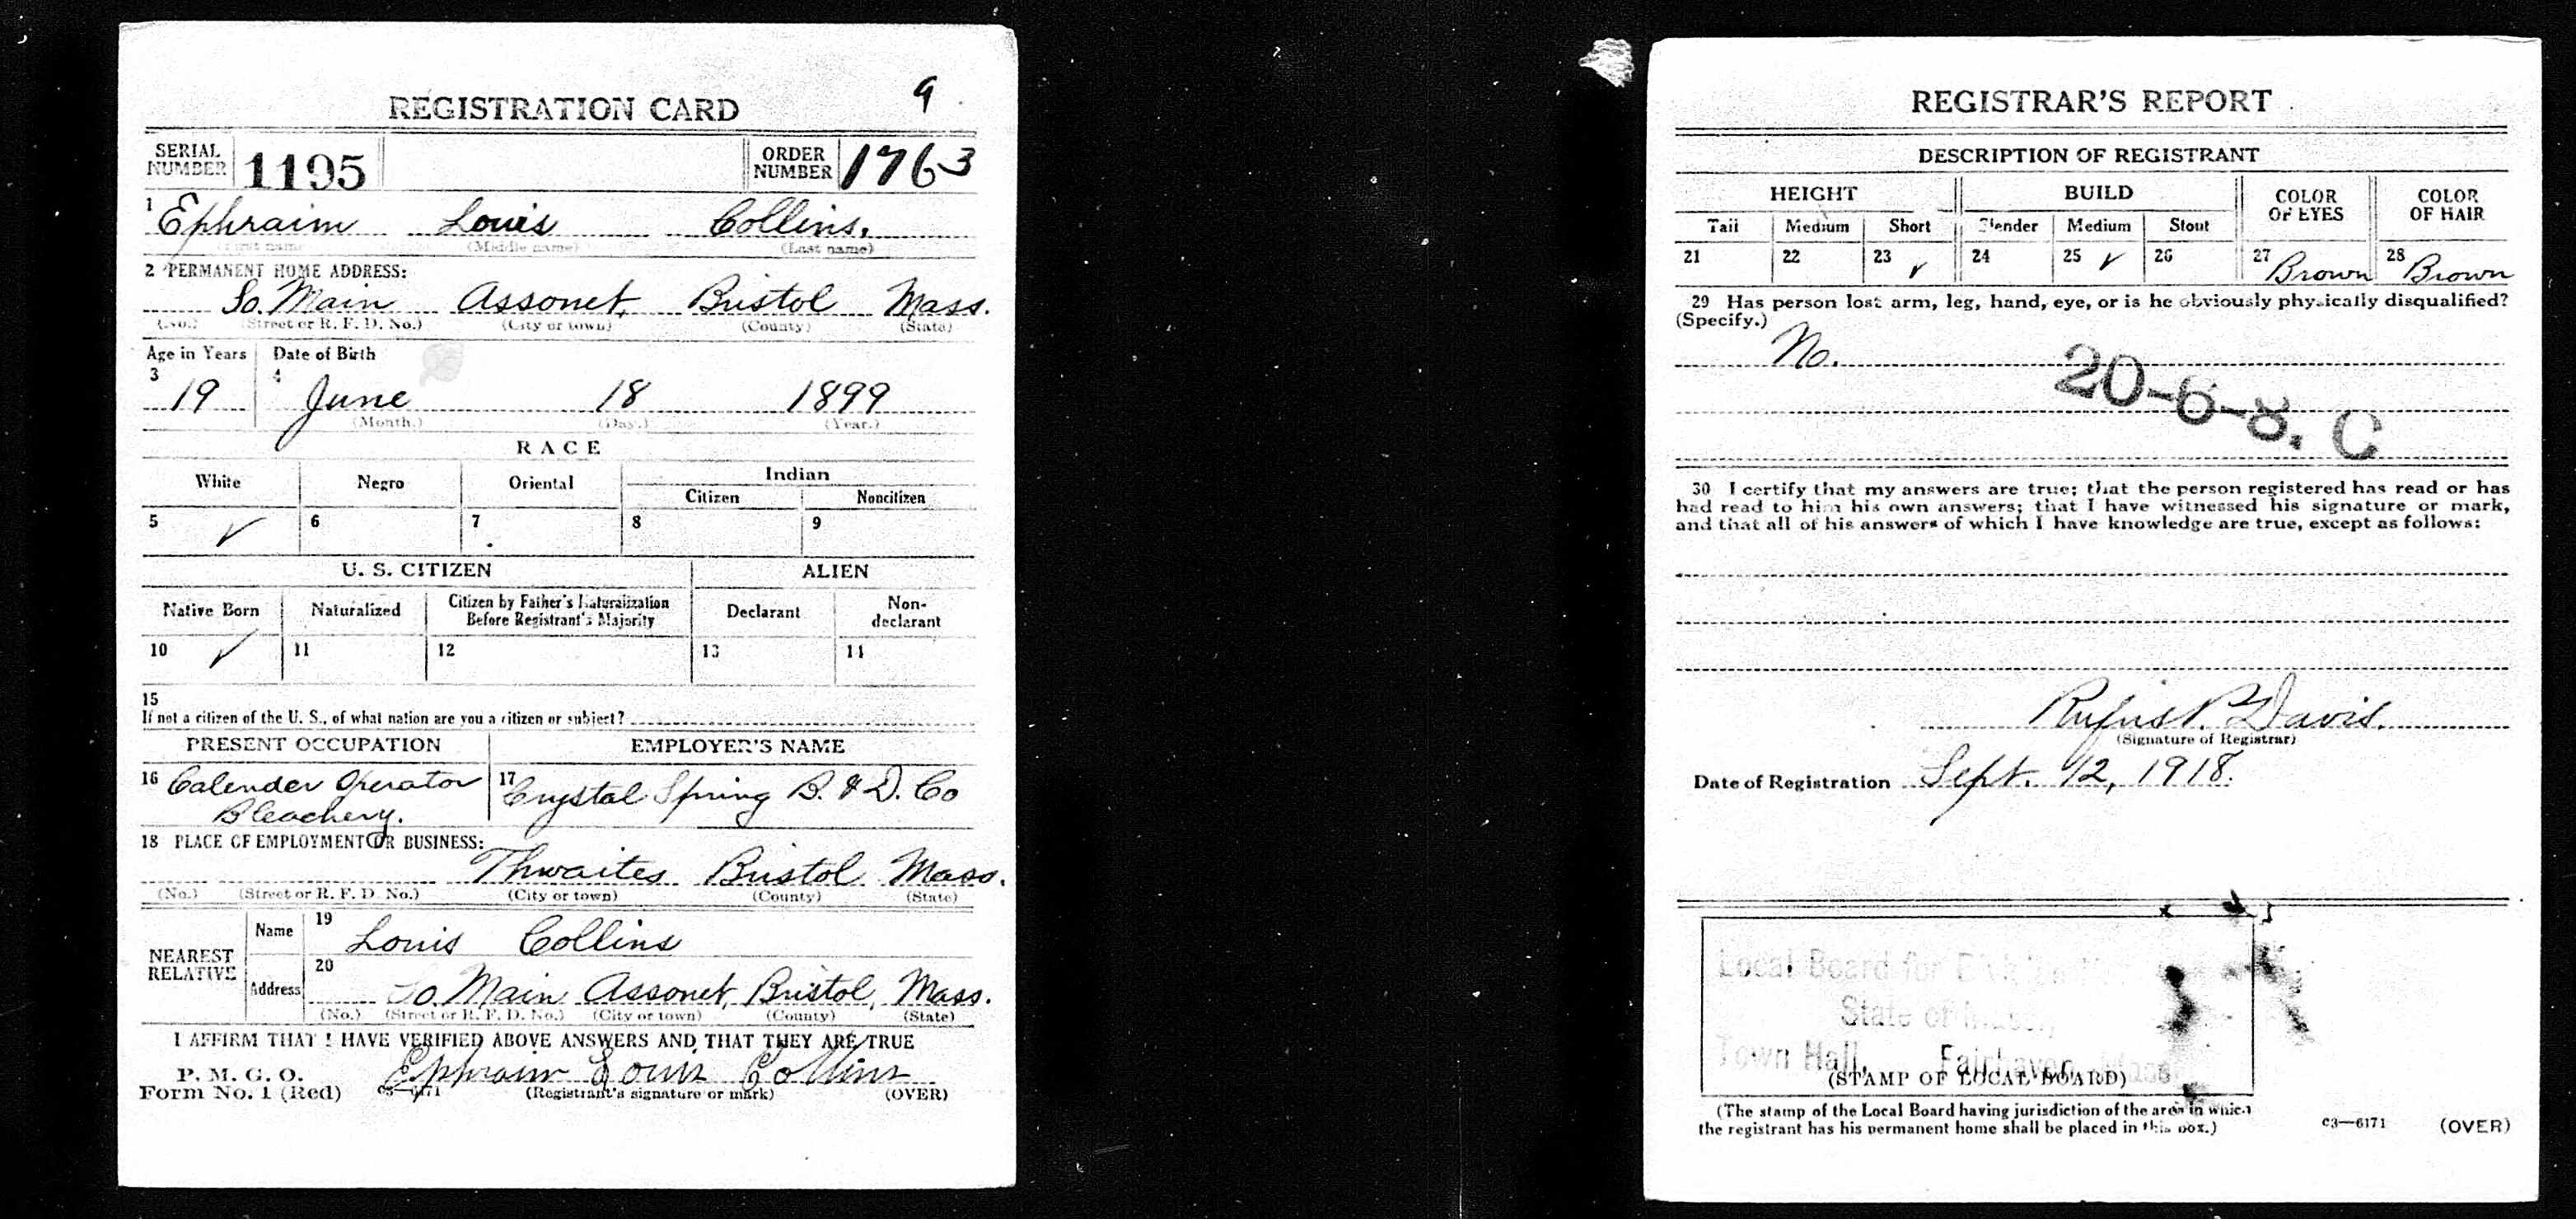 9
REGISTRATION CARD
SERIAL NUMBER 1195 ORDER NUMBER 1763
1 Ephraim Louis Collins.
(First name) (Middle name) (Last name)
2 PERMANENT HOME ADDRESS:
So. Main Assonet, Bristol Mass.
(No.) (Street or R. F. D. No.) (City or town) (County) (State)
Age in Years Date of Birth
3 19 4 June 18 1899
(Month.) (Day.) (Year.)
RACE
White Negro Oriental Indian
Citizen Noncitizen
5 ✓ 6 7 8 9
U. S. CITIZEN ALIEN
Native Born Naturalized Citizen by Father's Naturalization Before Registrant's Majority Declarant Non-declarant
10 ✓ 11 12 13 14
15
If not a citizen of the U. S., of what nation are you a citizen or subject?
PRESENT OCCUPATION EMPLOYER'S NAME
16 Calender Operator 17 Crystal Spring B. & D. Co
Bleachery.
18 PLACE OF EMPLOYMENT OR BUSINESS:
Thwaites Bristol Mass.
(No.) (Street or R. F. D. No.) (City or town) (County) (State)
NEAREST RELATIVE
Name 19 Louis Collins
Address 20 So. Main Assonet, Bristol, Mass.
(No.) (Street or R. F. D. No.) (City or town) (County) (State)
I AFFIRM THAT I HAVE VERIFIED ABOVE ANSWERS AND THAT THEY ARE TRUE
P. M. G. O.
Form No. 1 (Red) c3—6171 Ephraim Louis Collins
(Registrant's signature or mark) (OVER)
REGISTRAR'S REPORT
DESCRIPTION OF REGISTRANT
HEIGHT BUILD COLOR OF EYES COLOR OF HAIR
Tall Medium Short Slender Medium Stout
21 22 23 ✓ 24 25 ✓ 26 27 Brown 28 Brown
29 Has person lost arm, leg, hand, eye, or is he obviously physically disqualified?
(Specify.)
No.
20-6-8. C
30 I certify that my answers are true; that the person registered has read or has
had read to him his own answers; that I have witnessed his signature or mark,
and that all of his answers of which I have knowledge are true, except as follows:
Rufus P. Davis.
(Signature of Registrar)
Date of Registration Sept. 12, 1918.
Local Board for
State of Mass.,
Town Hall, Fairhaven, Mass
(STAMP OF LOCAL BOARD)
(The stamp of the Local Board having jurisdiction of the area in which
the registrant has his permanent home shall be placed in this box.)
c3—6171 (OVER)